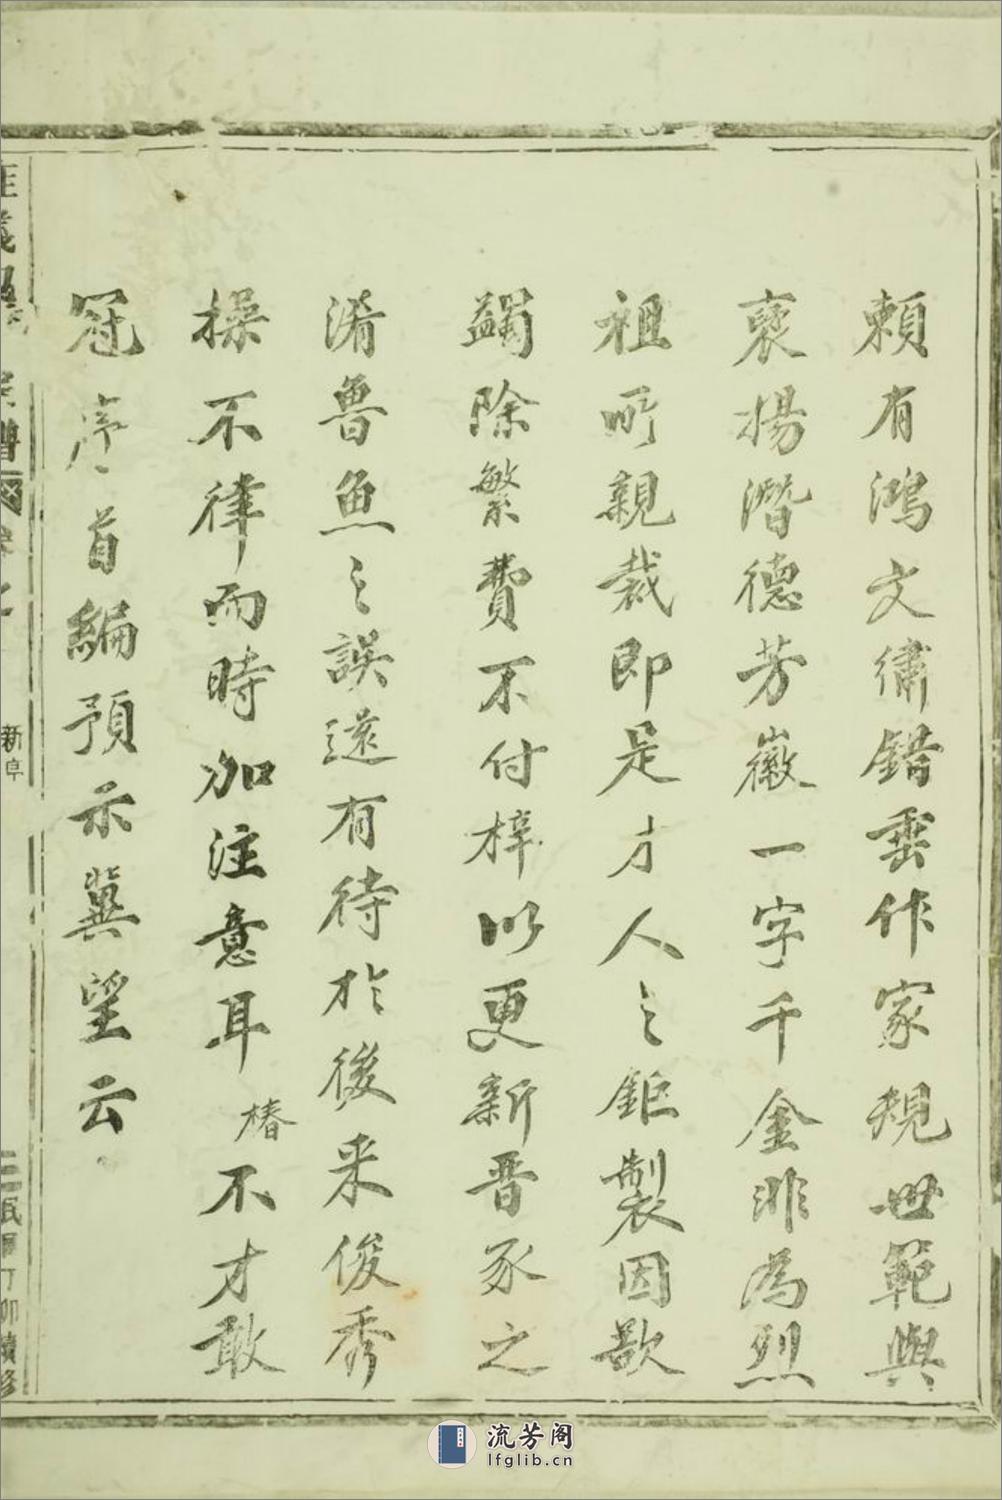 頼有鴻文繡錯垂作家規世範與
褒揚潛德芳徽一字千金非為烈
祖所親裁即是才人之鉅製因歌
蠲除繁費不付梓以更新晋豕之
淆魯魚之誤遠有待於後来俊秀
操不律而時加注意耳椿不才敢
冠序首編預示冀望云
新阜
民國丁卯續修
流芳阁
lfglib.cn